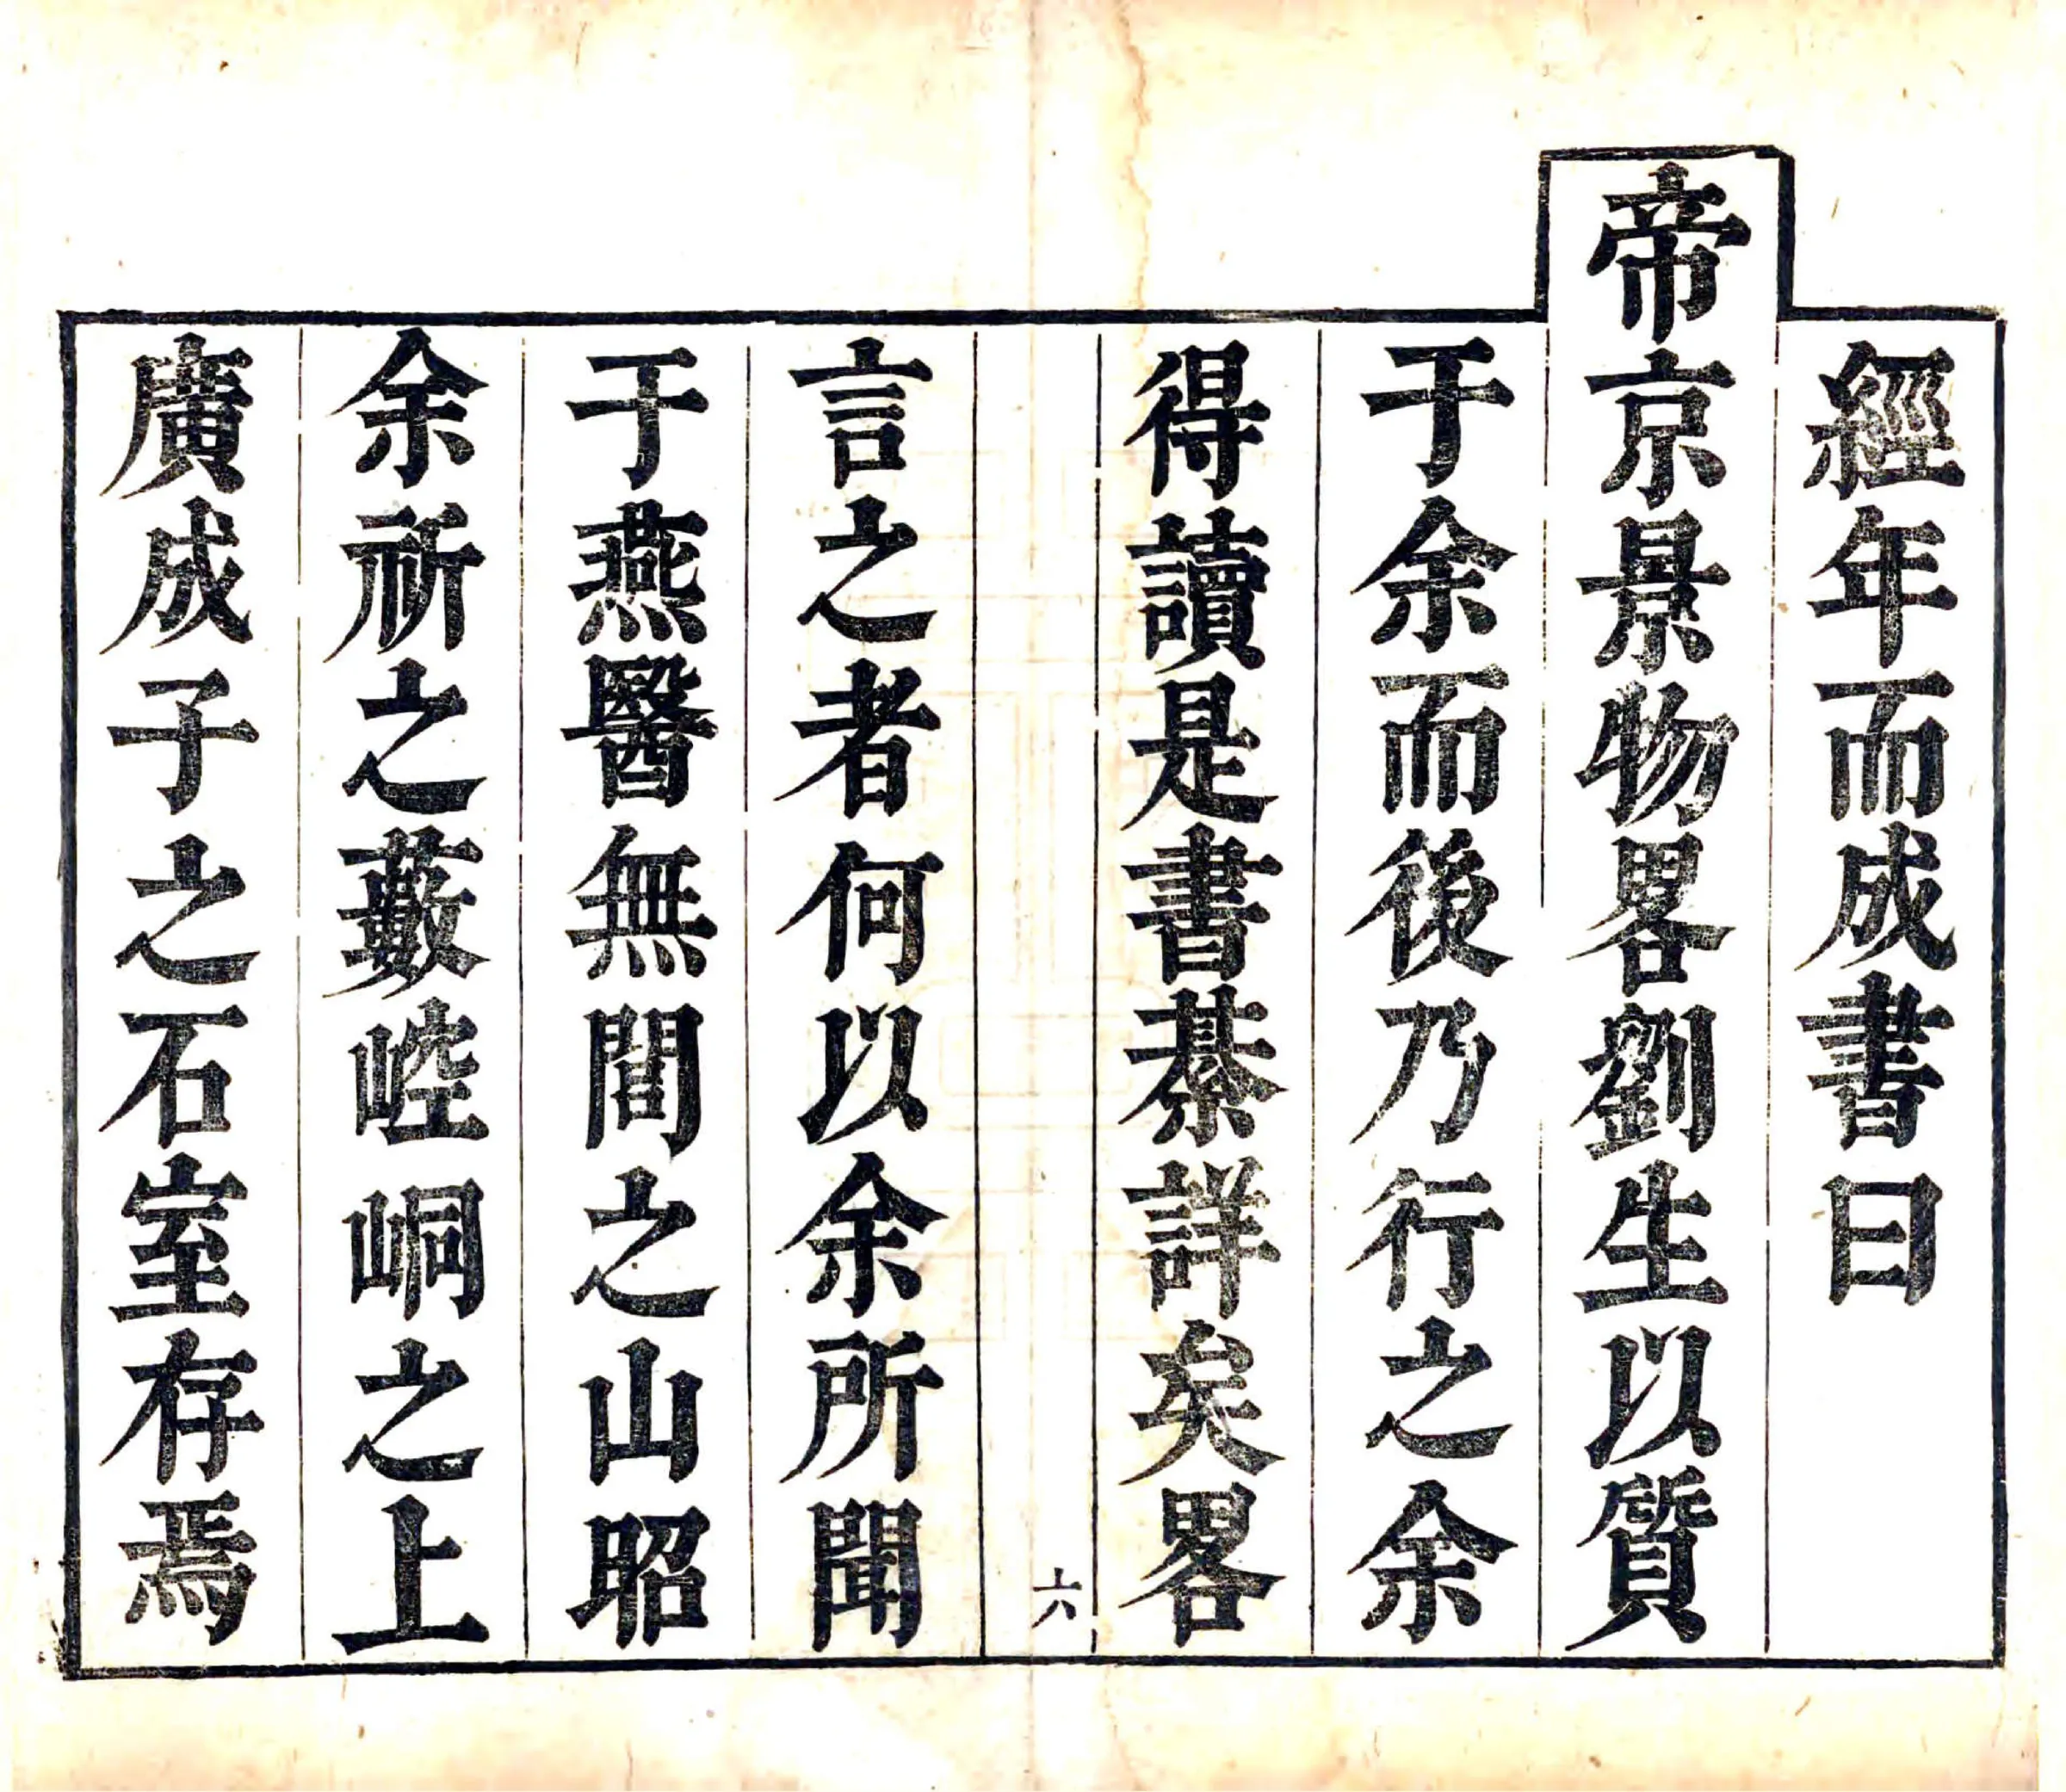 經年而成書曰
帝京景物畧劉生以質
于余而後乃行之余
得讀是書綦詳矣畧
六
言之者何以余所聞
于燕醫無閭之山昭
余祈之藪崆峒之上
廣成子之石室存焉